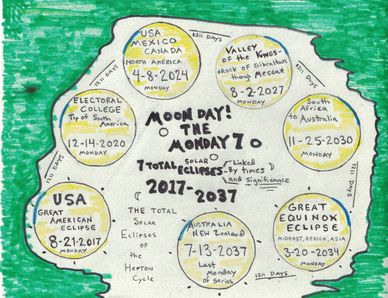 USA
MEXICO
CANADA
NORTH AMERICA
4-8-2024
MONDAY
1211 DAYS
VALLEY
OF THE KINGS-
ROCK OF Gibraltar
though MECCA
8-2-2027
MONDAY
1211 DAYS
ELECTORAL
COLLEGE
Tip of South
AMERICA
12-14-2020
MONDAY
1211 DAYS
MOON DAY!
THE
MONDAY 7
7 TOTAL SOLAR
ECLIPSES-
Linked
By times
and significance
2017-
2037
South
Africa
to Australia
11-25-2030
MONDAY
1211 DAYS
USA
GREAT
AMERICAN
ECLIPSE
8-21-2017
MONDAY
1211 DAYS
THE TOTAL
SOLAR
Eclipses of
the
Hepton
Cycle
AUSTRALIA
NEW Zealand
7-13-2037
LAST
Monday
of series
1211 DAYS
GREAT
EQUINOX
ECLIPSE
MIDEAST, AFRICA, ASIA
3-20-2034
MONDAY